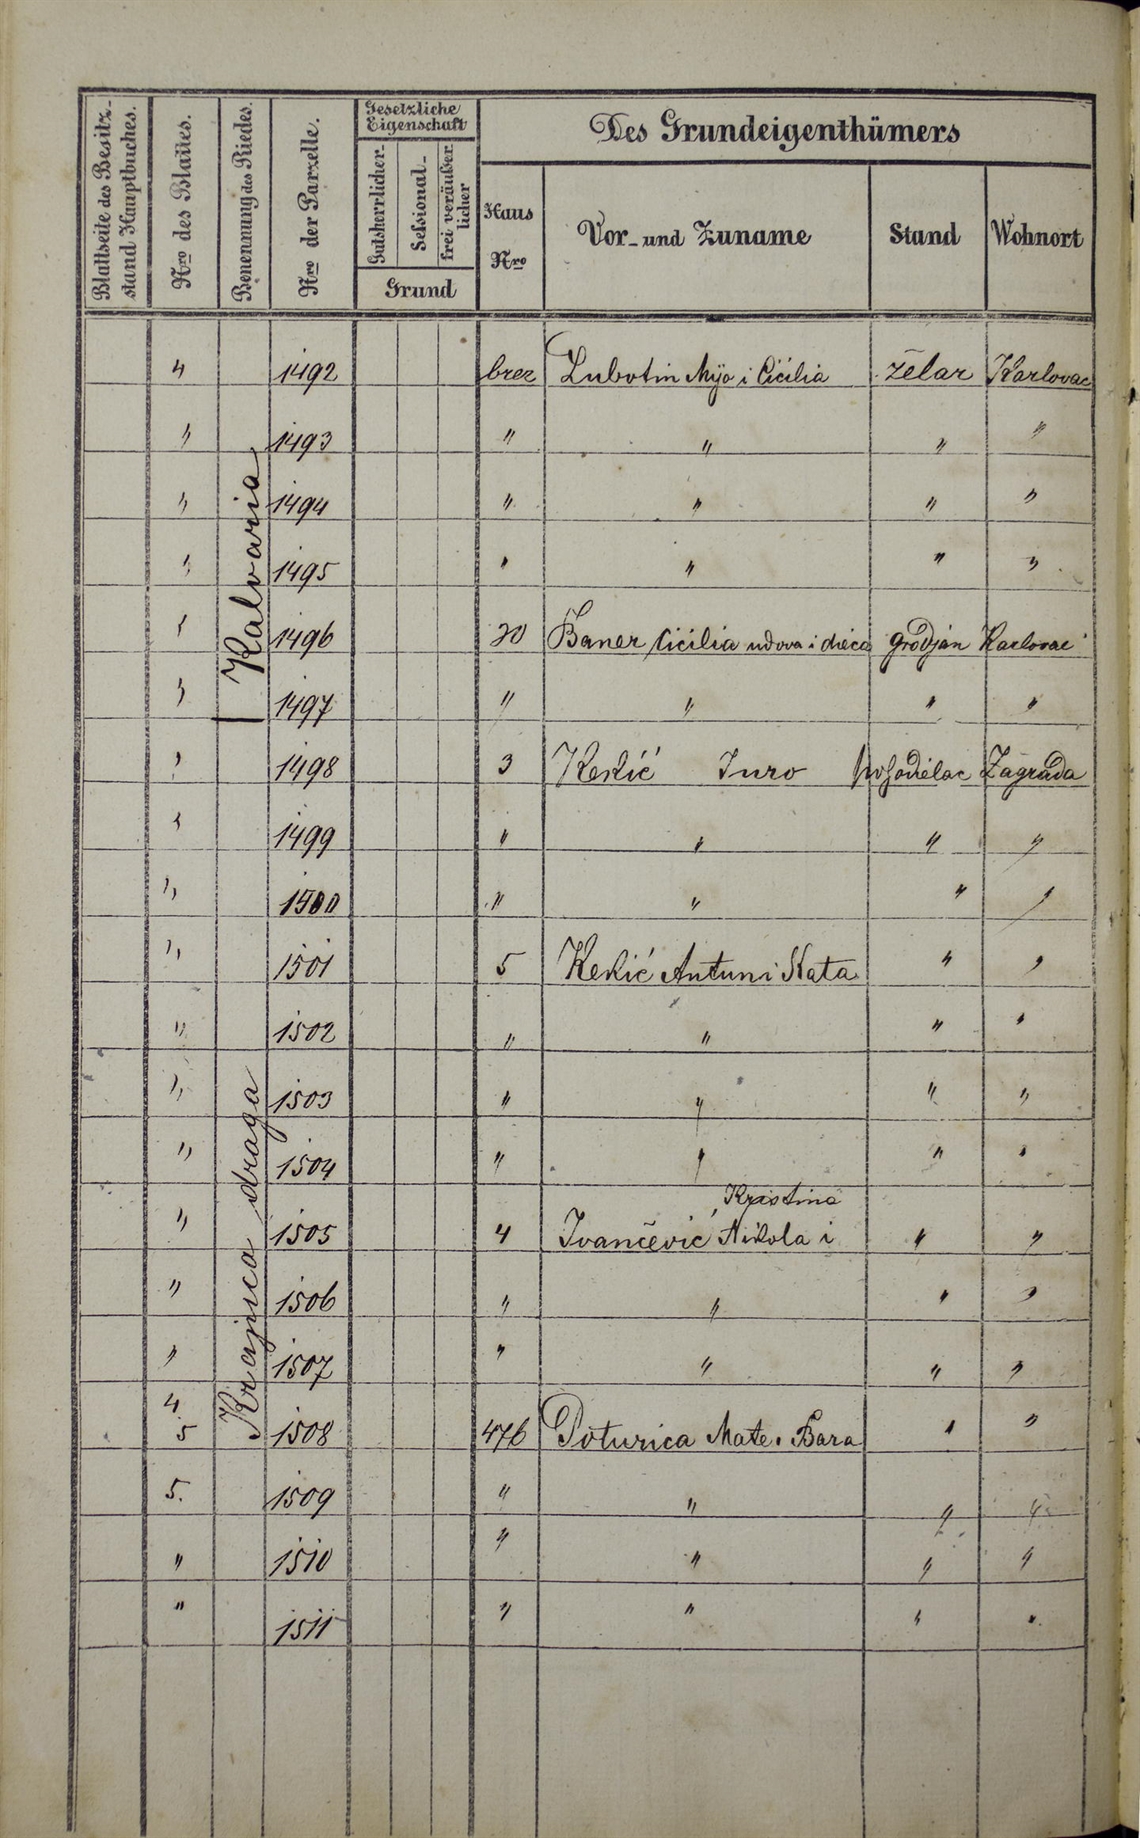 Blattseite des Besitz-
stand Hauptbuches.
Nro des Blattes.
Benennung des Riedes.
Nro der Parzelle.
Gesetzliche
Eigenschaft
Gutsherrlicher-
Sessional-
frei veräußer
licher
Grund
Des Grundeigenthümers
Haus
Nro
Vor- und Zuname
Stand
Wohnort
Kalvaria
Krajnica draga
4 1492 brez Lubotin Mijo i Cicilia želar Karlovac
" 1493 " " " "
" 1494 " " " "
" 1495 " " " "
" 1496 20 Baner Cicilia udova i dieca građjan Karlovac
" 1497 " " " "
" 1498 3 Kekić Juro poljodielac Zagrada
" 1499 " " " "
" 1500 " " " "
" 1501 5 Kekić Antun i Kata " "
" 1502 " " " "
" 1503 " " " "
" 1504 " " " "
Kristina
" 1505 4 Ivančević Nikola i " "
" 1506 " " " "
" 1507 " " " "
4
5 1508 476 Poturica Mate i Bara " "
5. 1509 " " " "
" 1510 " " " "
" 1511 " " " "